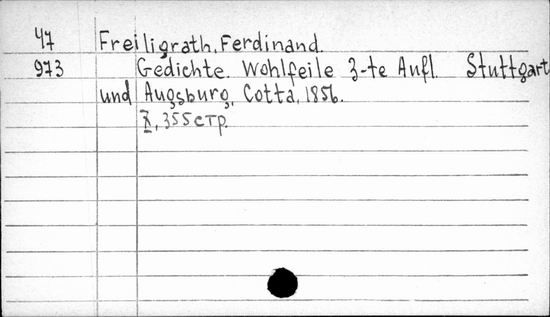 47 Freiligrath, Ferdinand.
973 Gedichte. Wohlfeile 3-te Aufl. Stuttgart
und Augsburg, Cotta, 1856.
X, 355 стр.